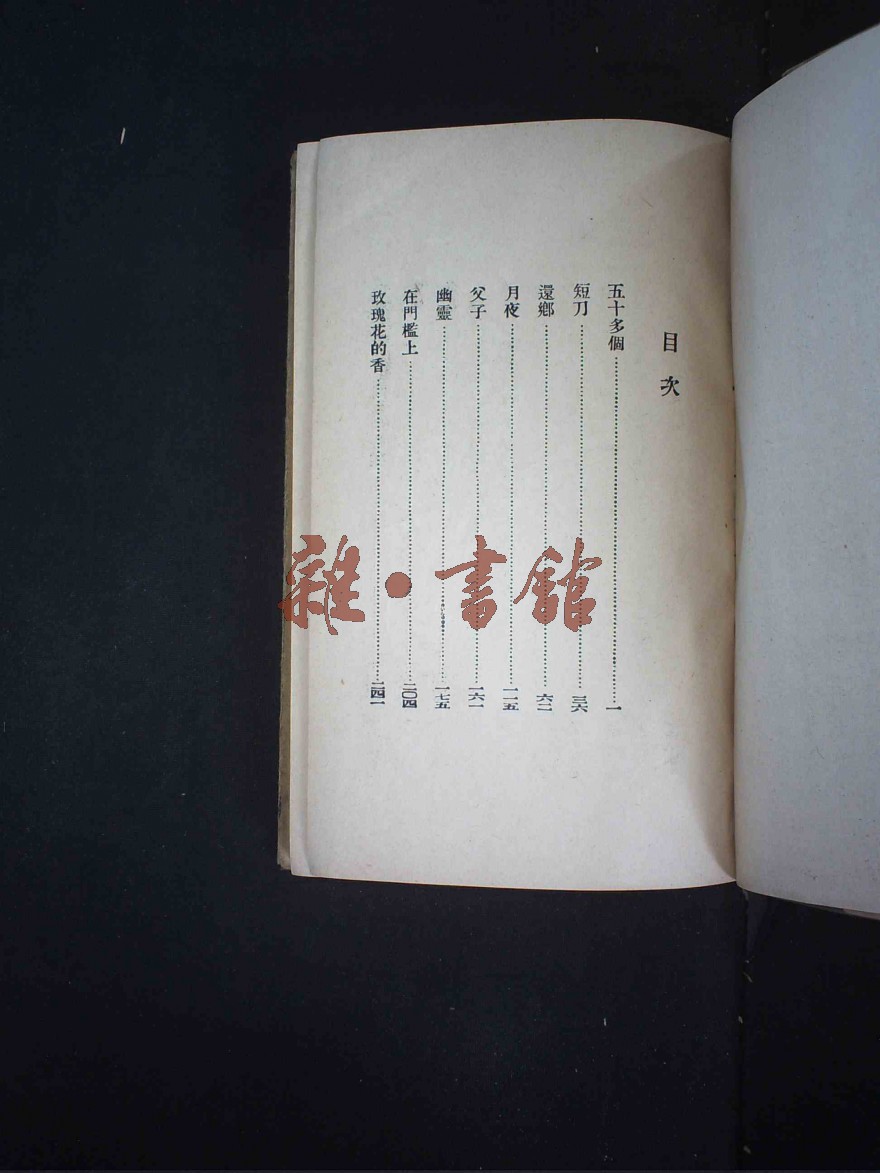 目次
五十多個……一
短刀……三六
還鄉……六二
月夜……一一五
父子……一六一
幽靈……一七五
在門檻上……二〇四
玫瑰花的香……二四一
雜·書館